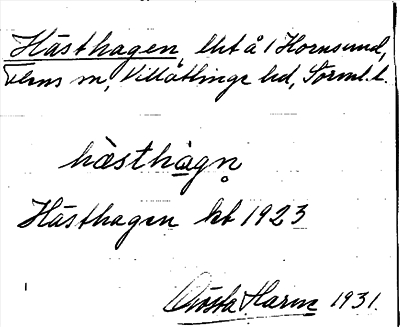 Hästhagen, lht å 1 Hornsund,
Vens sn, Villåttinge hd, Sörml. l.
hästhagn̥
Hästhagen kt 1923
Gösta Harm 1931.